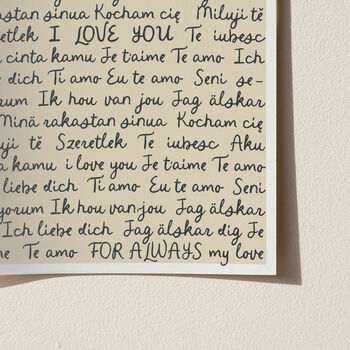 kastan sinua Kocham cię Miluji tě
retlek I LOVE YOU Te iubesc
cinta kamu Je t'aime Te amo Ich
dich Ti amo Eu te amo Seni se-
orum Ik hou van jou Jag älskar
Minä rakastan sinua Kocham cię
uji tě Szeretlek Te iubesc Aku
a kamu i love you Je t'aime Te amo
liebe dich Ti amo Eu te amo Seni
yorum Ik hou van jou Jag älskar
Ich liebe dich Jag älskar dig Je
me Te amo FOR ALWAYS my love